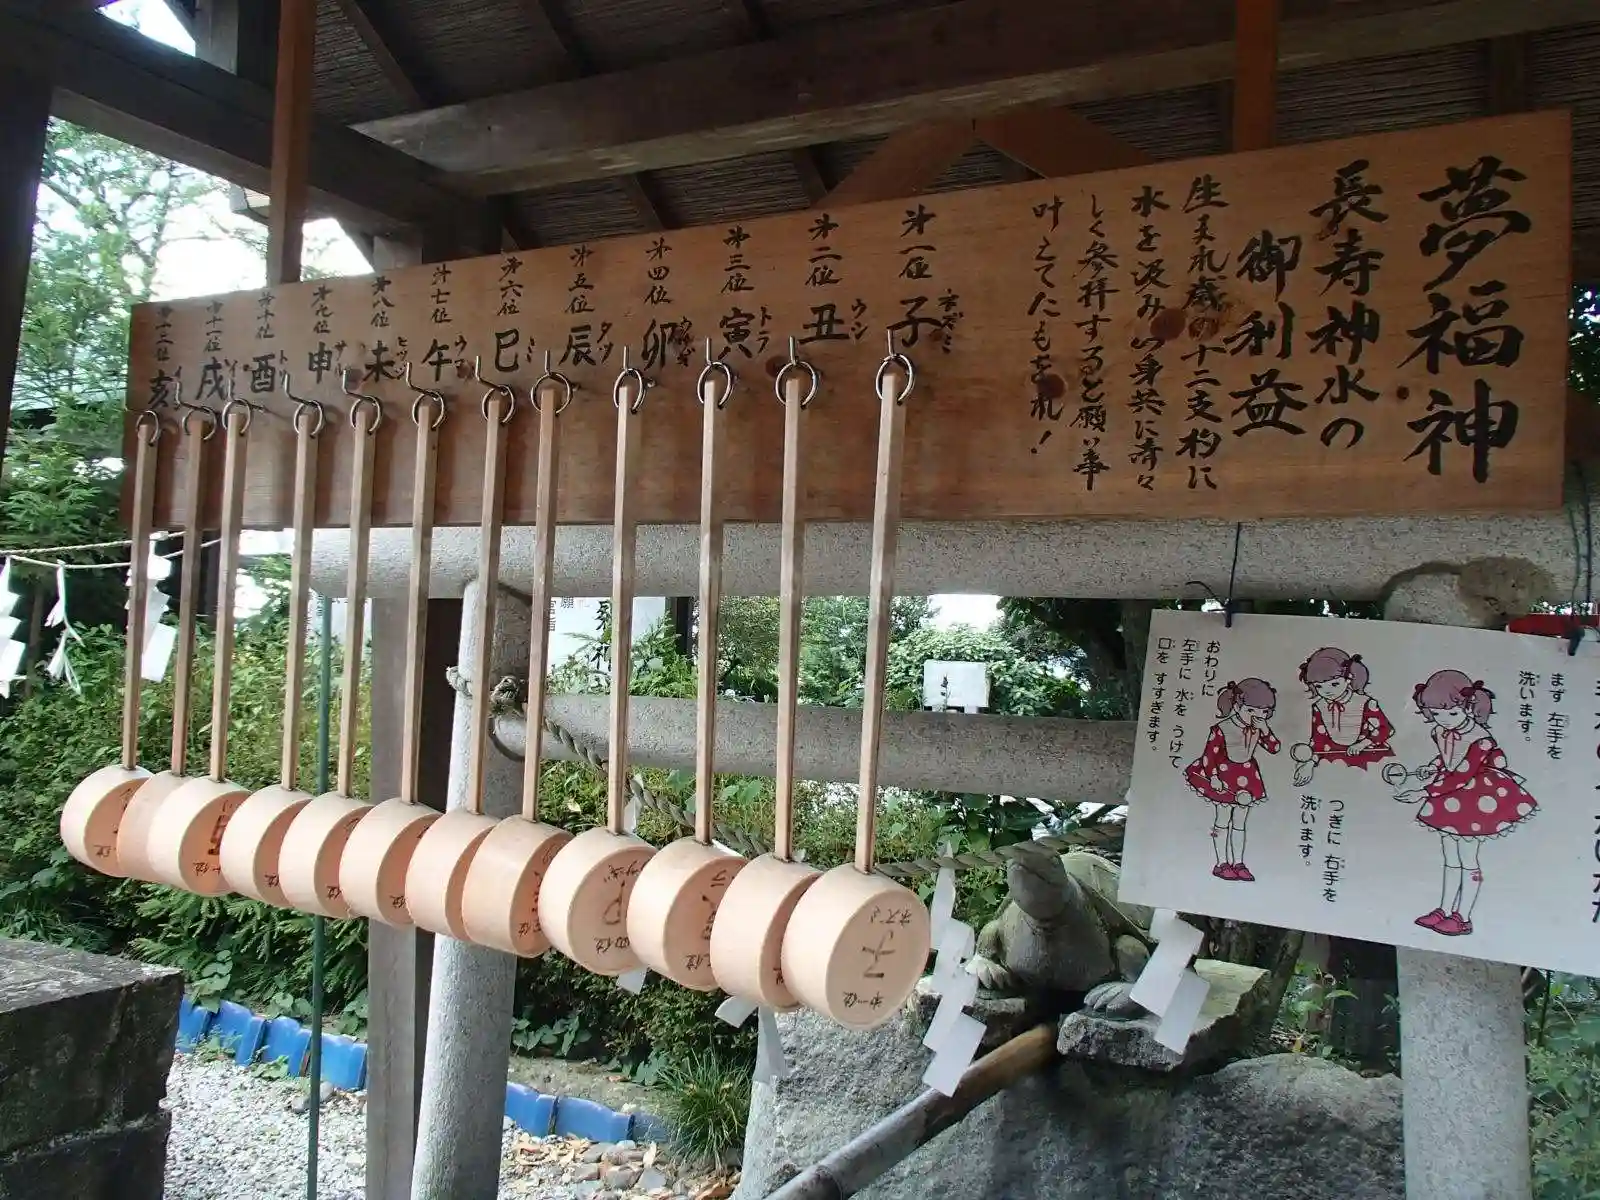 夢福神
長寿神水の
御利益
生まれ歳の十二支杓に
水を汲み心身共に清々
しく参拝すると願い事
叶えてたもをれ!
第一位 子 ネズミ
第二位 丑 ウシ
第三位 寅 トラ
第四位 卯 ウサギ
第五位 辰 タツ
第六位 巳 ミ
第七位 午 ウマ
第八位 未 ヒツジ
第九位 申 サル
第十位 酉 トリ
十一位 戌
十二位 亥
ネズミ
子
第一位
まず 左手を
洗います。
つぎに 右手を
洗います。
おわりに
左手に 水を うけて
口を すすぎます。